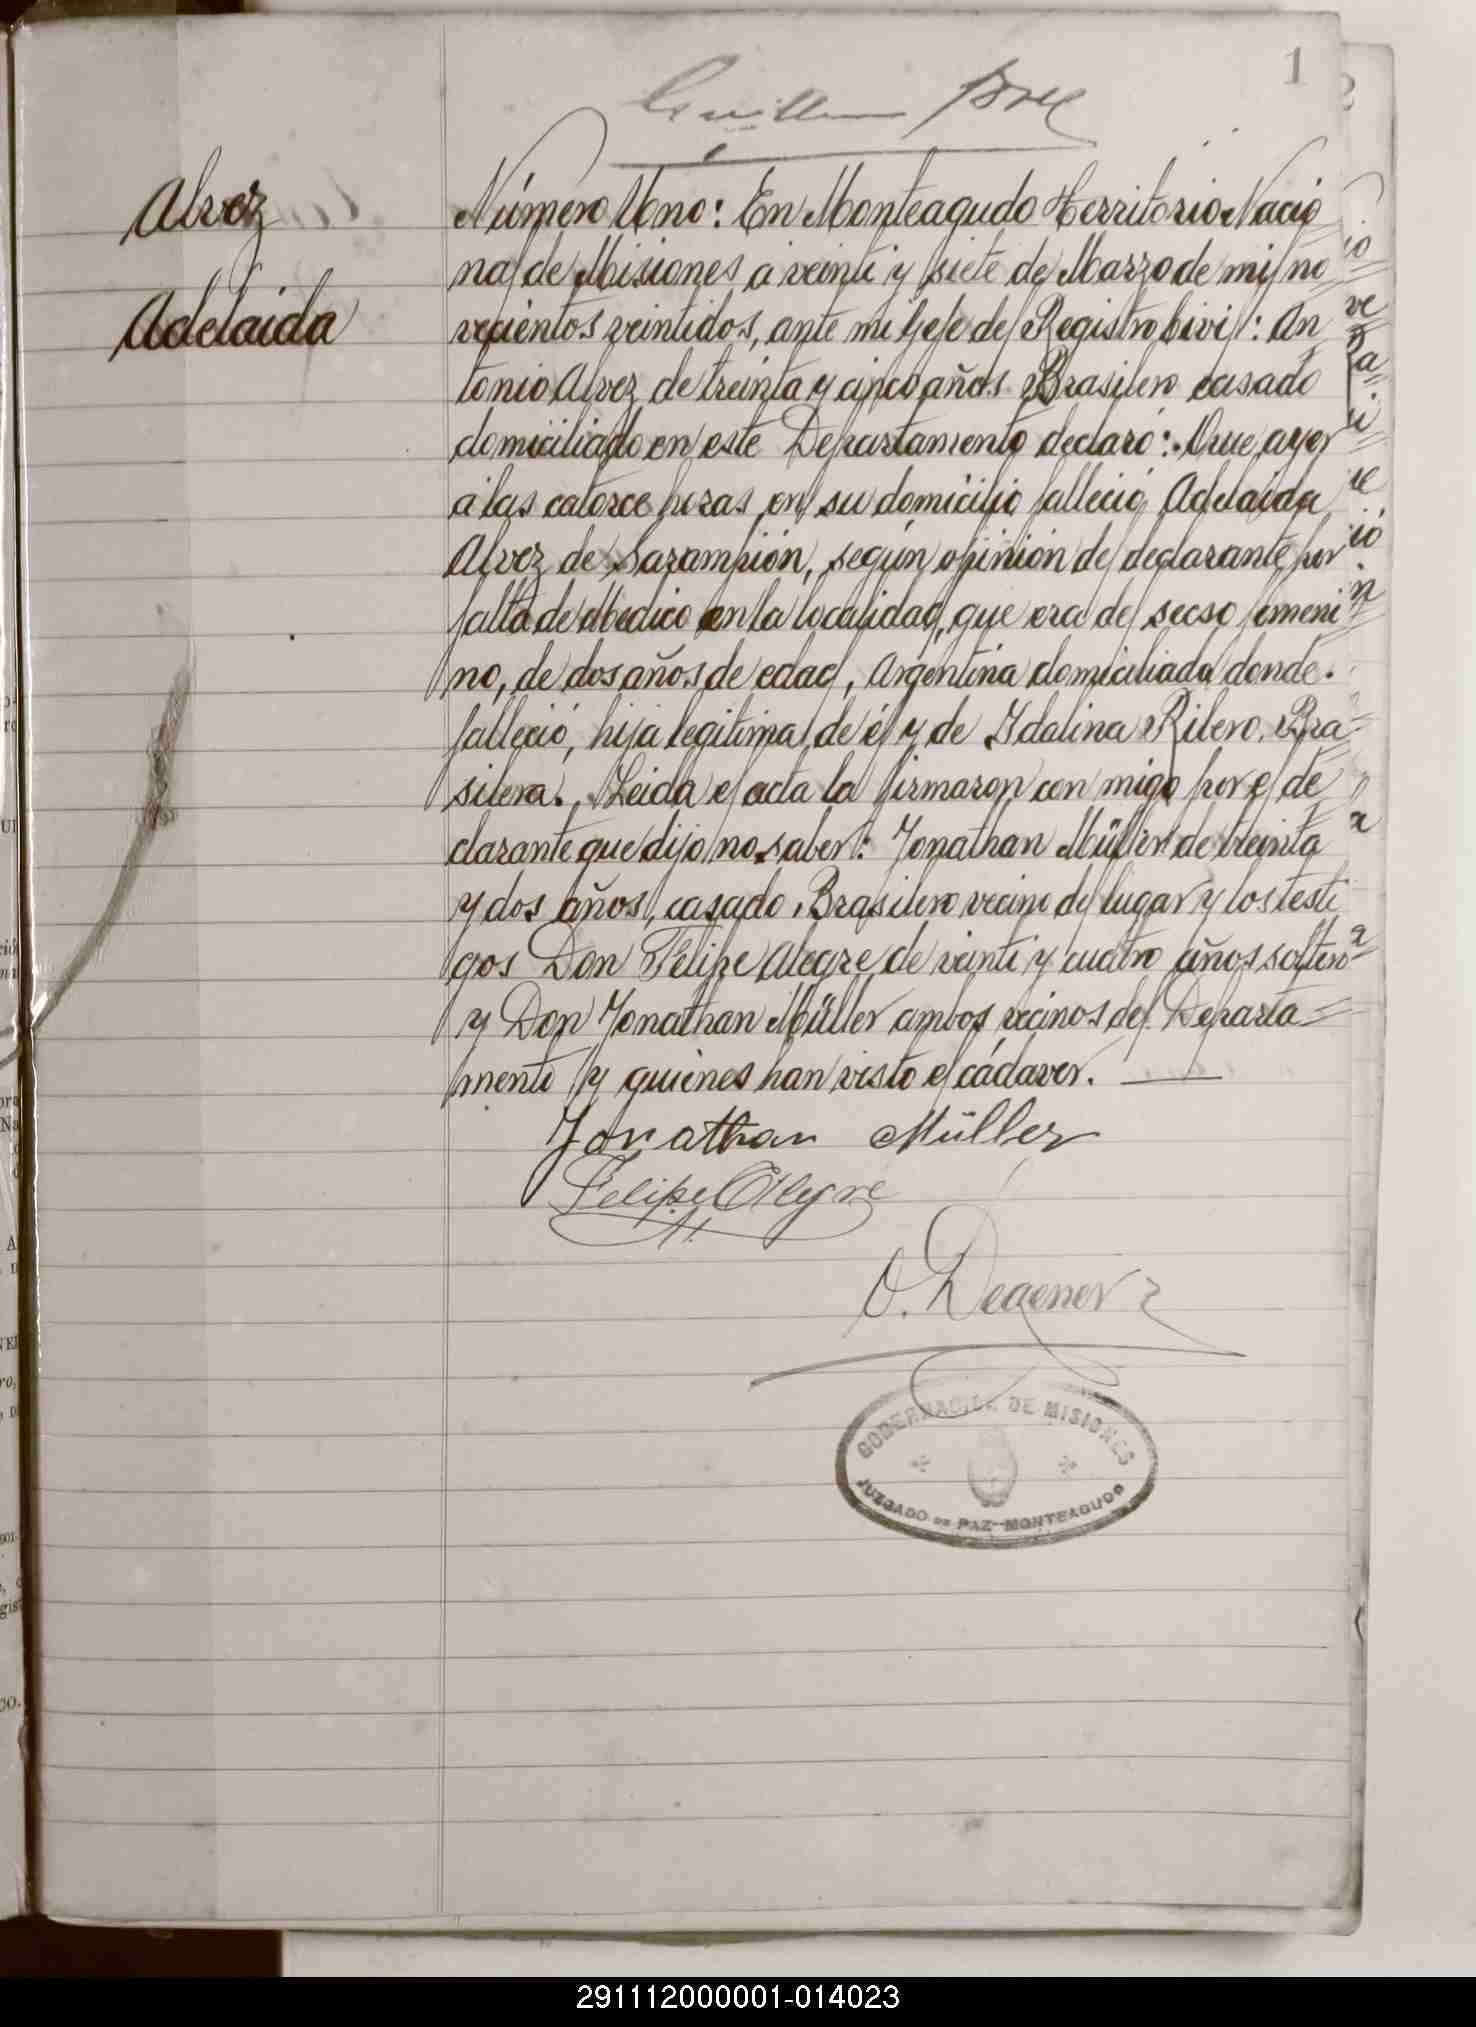 1
Alvez
Adelaida
Número Uno: En Monteagudo Territorio Nacio
nal de Misiones a veinti y siete de Marzo de mil no
vecientos veintidos, ante mi Gefe del Registro Civil: An
tonio Alvez de treinta y cinco años Brasilero casado
domiciliado en este Departamento declaró: Que ayer
a las catorce horas en su domicilio falleció Adelaida
Alvez de Sarampión, según opinión del declarante por
falta de Medico en la localidad, que era del secso femeni
no, de dos años de edad, Argentina domiciliada donde
falleció, hija legitima de él y de Idalina Rilero, Bra
silera. Leida el acta la firmaron con migo por el de
clarante que dijo no saber: Jonathan Müller de treinta
y dos años, casado, Brasilero vecino del lugar y los testi
gos Don Felipe Alegre de veinti y cuatro años soltero
y Don Jonathan Müller ambos vecinos del Departa
mento y quienes han visto el cádaver.
Jonathan Müller
Felipe Alegre
O. Degener
GOBERNACION DE MISIONES
JUZGADO DE PAZ MONTEAGUDO
291112000001-014023